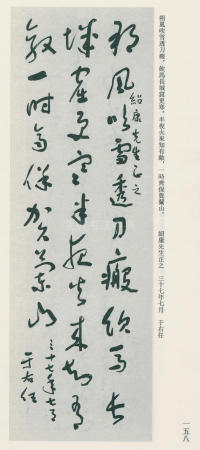 朔風吹雪透刀瘢，飲馬長城窟更寒。半夜火來知有敵，一時齊保賀蘭山。　紹康先生正之　三十七年七月　于右任
朔風吹雪透刀瘢飲馬長
紹康先生正之
城窟更寒半夜火來知有
敵一時齊保賀蘭山
三十七年七月
于右任
一五八